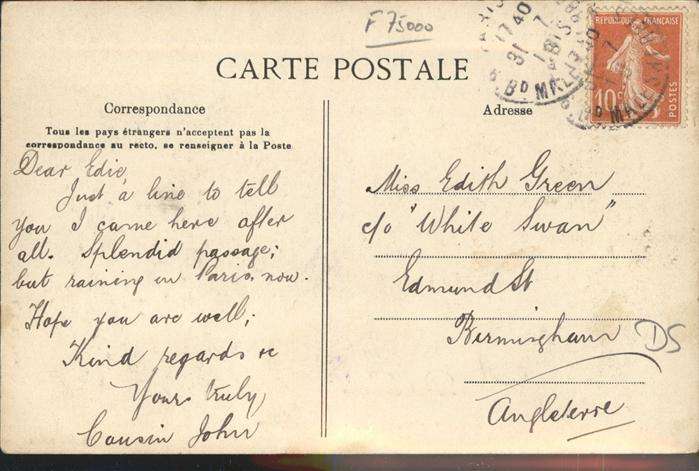 F 75000
CARTE POSTALE
RÉPUBLIQUE FRANÇAISE
10c
POSTES
PARIS
17 40
31 7
Bᴰ MALE
Correspondance
Tous les pays étrangers n'acceptent pas la
correspondance au recto, se renseigner à la Poste
Dear Edie
Just a line to tell
you I came here after
all. Splendid passage;
but raining in Paris now.
Hope you are well;
Kind regards &c
Yours truly
Cousin John
Adresse
Miss Edith Green
c/o "White Swan"
Edmund St
Birmingham
Angleterre
DS